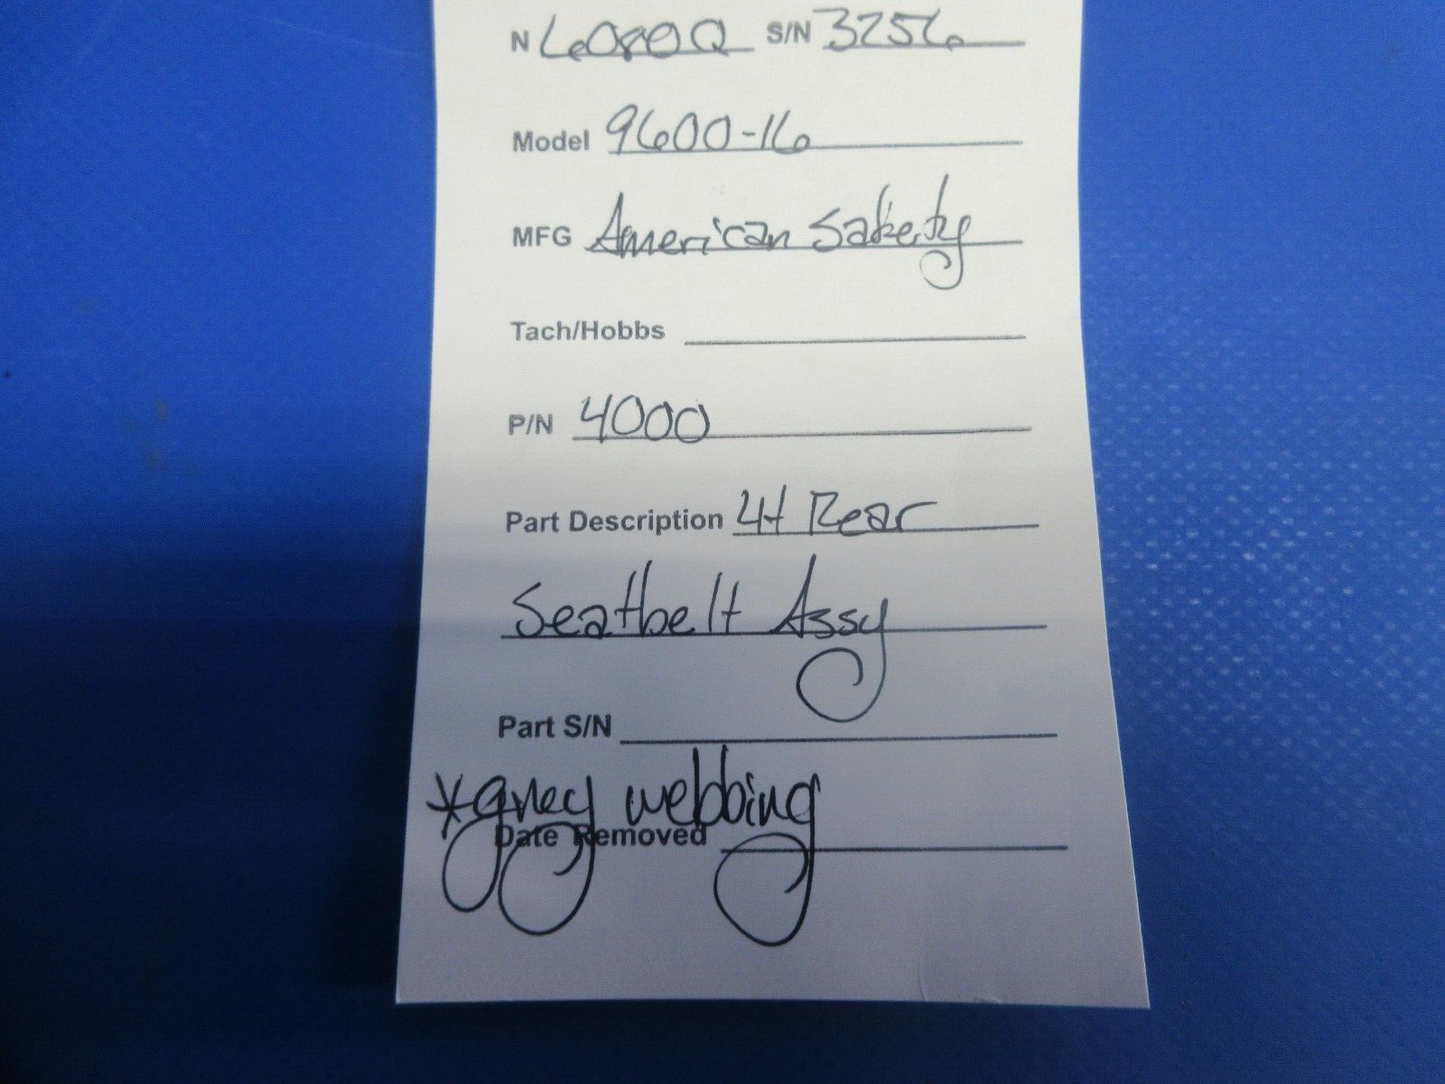 N 6080Q S/N 3256
Model 9600-16
MFG American Safety
Tach/Hobbs
P/N 4000
Part Description LH Rear
Seatbelt Assy
Part S/N
*grey webbing
Date Removed